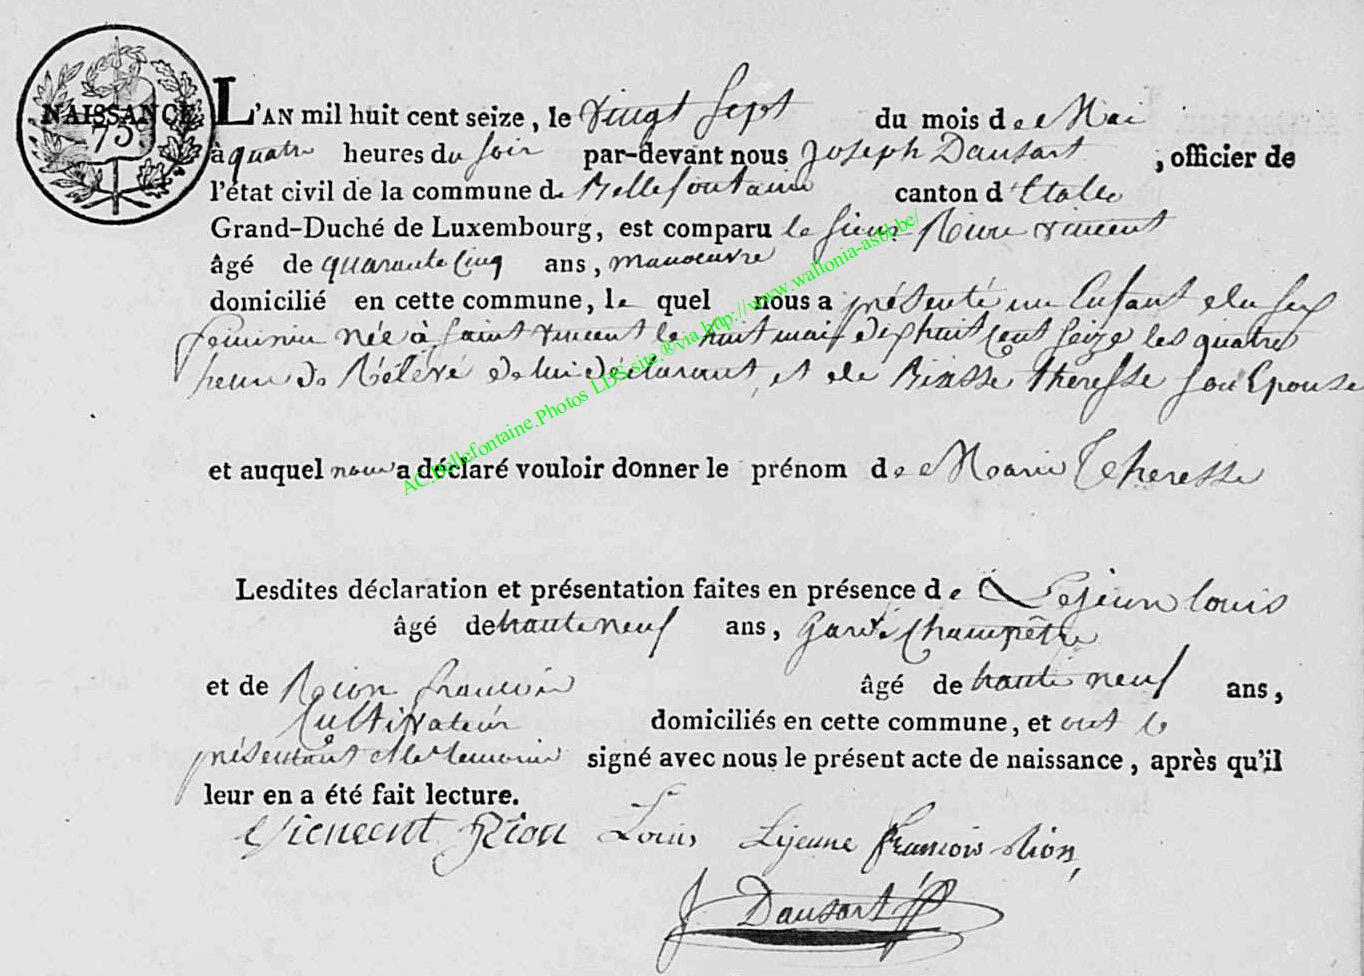 NAISSANCE
75
L'AN mil huit cent seize, le Vingt Sept du mois de Mai
à quatre heures du soir par-devant nous Joseph Dausart, officier de
l'état civil de la commune de Bellefontaine canton d'Etalle
Grand-Duché de Luxembourg, est comparu le sieur Rion vincent
âgé de quarante Cinq ans, manoeuvre
domicilié en cette commune, le quel nous a présenté un Enfant du sex
feminin née à Saint vincent le huit mai dix huit Cent Seize les quatre
heure de Rélévé de lui déclarant, et de Theresse son Epouse
et auquel nous a déclaré vouloir donner le prénom de Marie Theresse
Lesdites déclaration et présentation faites en présence de Lejeun Louis
âgé de trante neuf ans, Garde Champêtre
et de Rion francois âgé de trante neuf ans,
Cultivateur domiciliés en cette commune, et ont le
présentant et les temoins signé avec nous le présent acte de naissance, après qu'il
leur en a été fait lecture.
Viencent Rion Louis Lejeune francois Rion
J Dausart
AC.Bellefontaine.Photos LDS.site ®via http://www.wallonia-asbl.be/